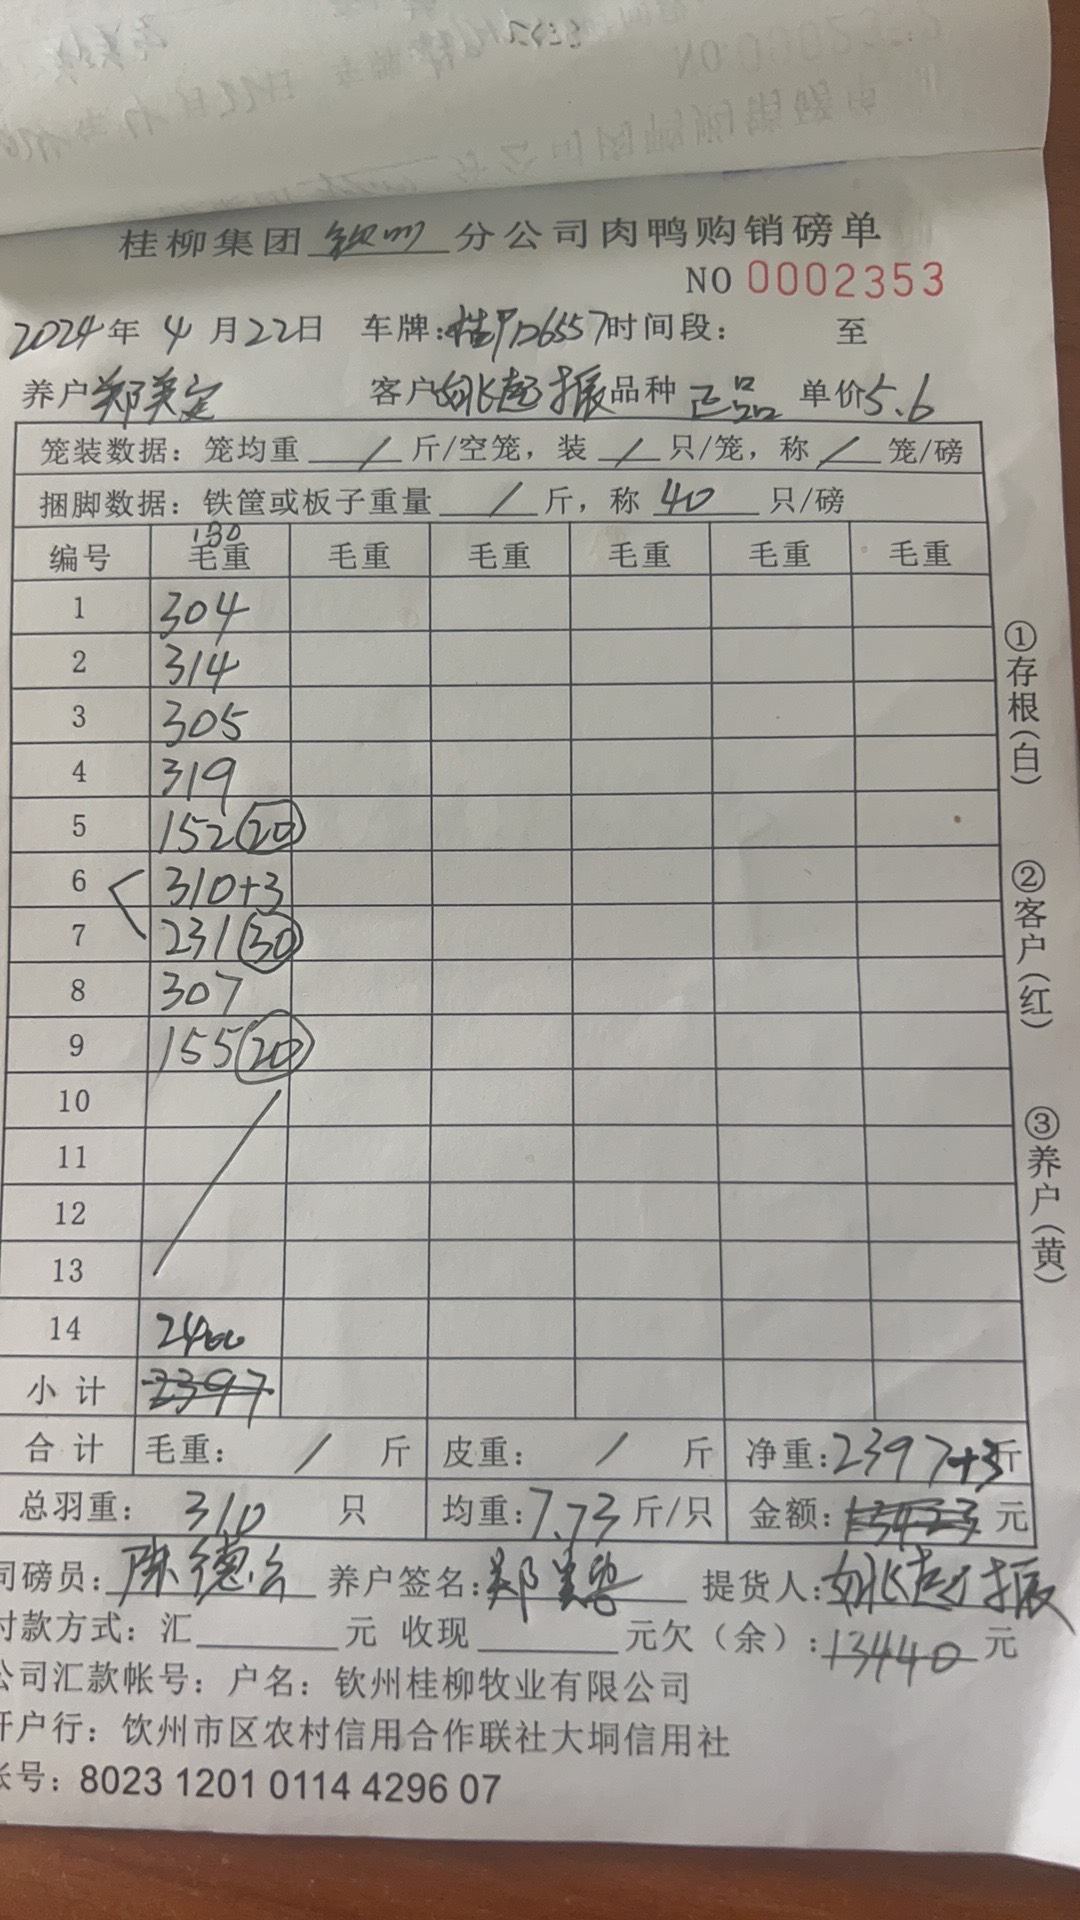 桂柳集团 钦州 分公司肉鸭购销磅单
NO 0002353
2024年 4月22日 车牌:桂PD6557时间段： 至
养户 郑美定 客户 姚起振 品种 正品 单价5.6
笼装数据：笼均重 / 斤/空笼，装 / 只/笼，称 / 笼/磅
捆脚数据：铁筐或板子重量 / 斤，称 40 只/磅
130
编号 毛重 毛重 毛重 毛重 毛重 毛重
1 304
2 314
3 305
4 319
5 152 20
6 310+3
7 231 30
8 307
9 155 20
10
11
12
13
14 2400
小计 2397
合计 毛重： / 斤 皮重： / 斤 净重:2397+3斤
总羽重： 310 只 均重:7.73斤/只 金额:13423 元
司磅员: 陈德 养户签名:郑美 提货人:姚起振
付款方式：汇 元 收现 元欠（余）:13440 元
公司汇款帐号：户名：钦州桂柳牧业有限公司
开户行：饮州市区农村信用合作联社大垌信用社
帐号：8023 1201 0114 4296 07
①存根(白)
②客户(红)
③养户(黄)